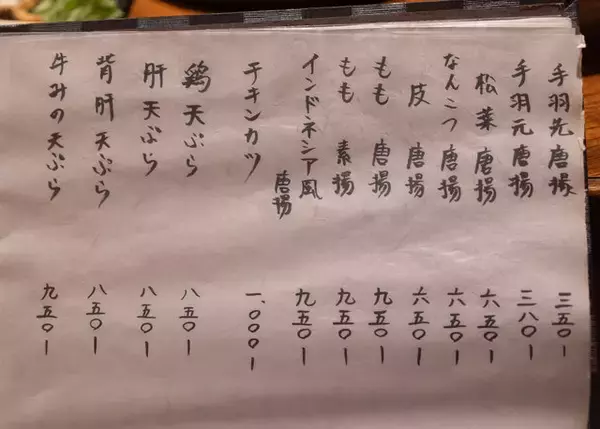 手羽先唐揚 三五〇ー
手羽元唐揚 三八〇ー
松葉唐揚 六五〇ー
なんこつ唐揚 六五〇ー
皮 唐揚 六五〇ー
もも 唐揚 九五〇ー
もも 素揚 九五〇ー
インドネシア風唐揚 九五〇ー
チキンカツ 一、〇〇〇ー
鶏天ぷら 八五〇ー
肝天ぷら 八五〇ー
背肝天ぷら 八五〇ー
牛みの天ぷら 九五〇ー